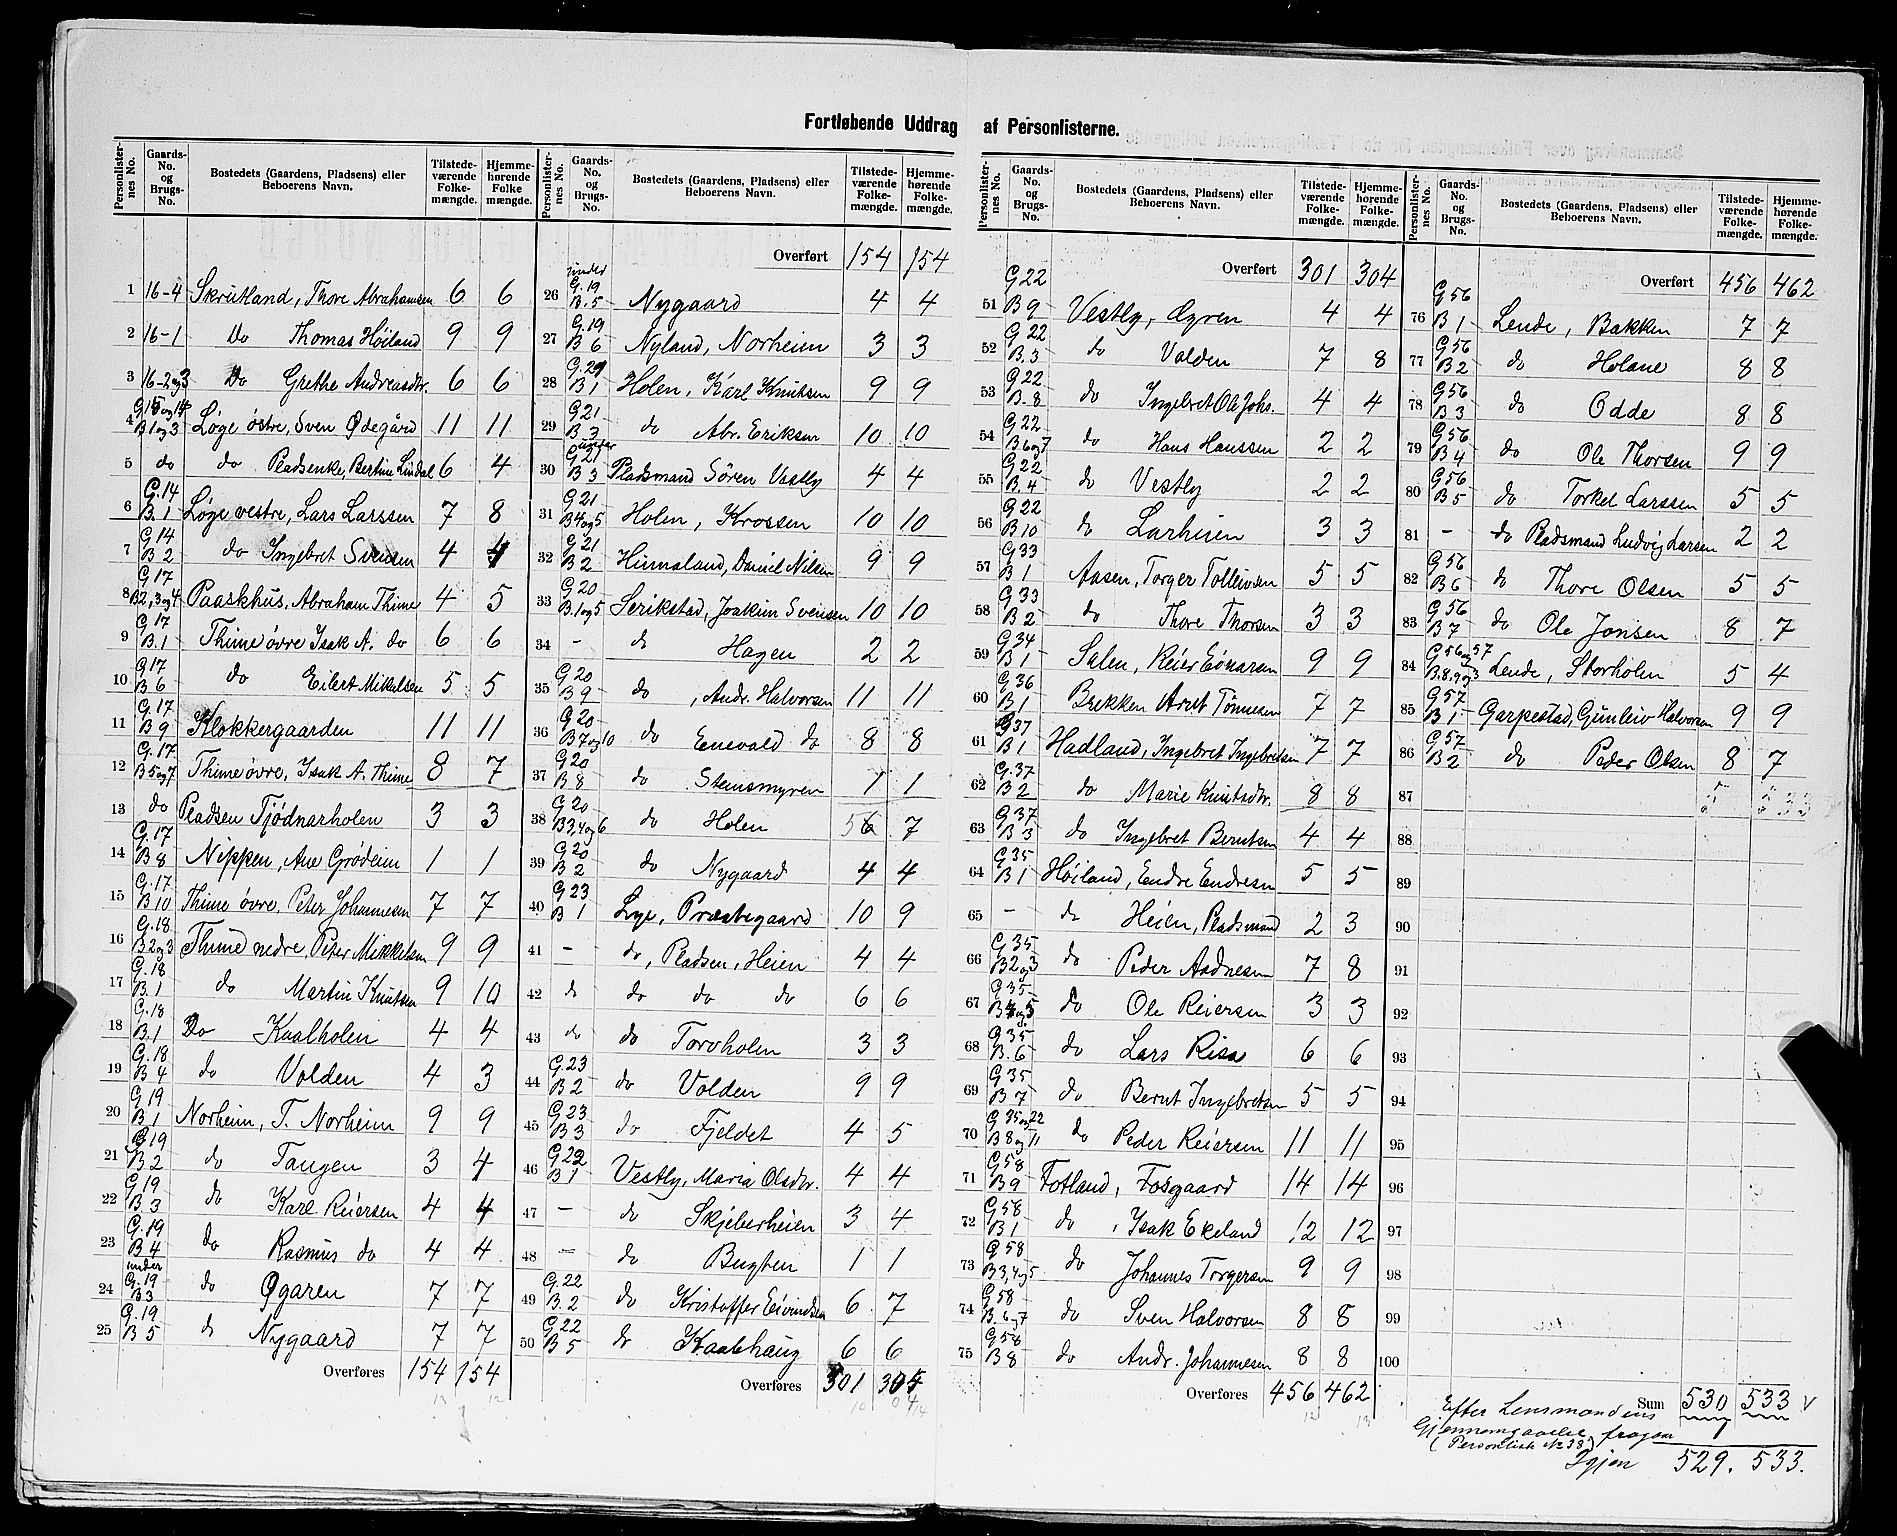 Fortløbende Uddrag af Personlisternes.
Personlister-nes No. | Gaards-No. og Brugs-No. | Bostedets (Gaardens, Pladsens) eller Beboerens Navn. | Tilstede-værende Folke-mængde. | Hjemme-hørende Folke mængde.
1 | 16-4 | Skrutland, Thore Abrahamsen | 6 | 6
2 | 16-1 | Do Thomas Høiland | 9 | 9
3 | 16-2og3 | Do Grethe Andreasdtr. | 6 | 6
4 | G15og14 B1og3 | Løge østre, Sven Ødegård | 11 | 11
5 | do | do Pladsenke, Bertine Lindal | 6 | 4
6 | G.14 B.1 | Løge vestre, Lars Larssen | 7 | 8
7 | G14 B2 | do Ingebret Svensen | 4 | 4
8 | G.17 B2,3og4 | Paaskhus, Abraham Thime | 4 | 5
9 | G.17 B.1 | Thime øvre Isak A. do | 6 | 6
10 | G17 B6 | do Eilert Mikalsen | 5 | 5
11 | G.17 B9 | Klokkergaarden | 11 | 11
12 | G.17 B5og7 | Thime øvre, Isak A. Thime | 8 | 7
13 | do | Pladsen Tjødnarholen | 3 | 3
14 | G.17 B8 | Nippen, Ane Grødeim | 1 | 1
15 | G.17 B10 | Thime øvre, Peter Johannesen | 7 | 7
16 | G.18 B.2og3 | Thime nedre, Peter Mikkelsen | 9 | 9
17 | G.18 B.1 | do Martin Knutsen | 9 | 10
18 | G.18 B.1 | Do Kaalholen | 4 | 4
19 | G.18 B4 | do Volden | 4 | 3
20 | G19 B1 | Norheim, T. Norheim | 9 | 9
21 | G19 B2 | do Tangen | 3 | 4
22 | G19 B.3 | do Karl Reiersen | 4 | 4
23 | G.19 B4 | do Rasmus do | 4 | 4
24 | under G.19 B3 | do Øgaren | 7 | 7
25 | G.19 B5 | do Nygaard | 7 | 7
Overføres | 154 | 154
Personlister-nes No. | Gaards-No. og Brugs-No. | Bostedets (Gaardens, Pladsens) eller Beboerens Navn. | Tilstede-værende Folke-mængde. | Hjemme-hørende Folke-mængde.
Overført | 154 | 154
26 | under G.19 B.5 | Nygaard | 4 | 4
27 | G.19 B6 | Nyland, Norheim | 3 | 3
28 | G.21 B1 | Holen, Karl Knutsen | 9 | 9
29 | G21 B3 | do Abr. Eriksen | 10 | 10
30 | under G21 B3 | Pladsmand Sören Vastly | 4 | 4
31 | G21 B4og5 | Holen, Krossen | 10 | 10
32 | G21 B2 | Hinnaland, Daniel Nilsen | 9 | 9
33 | G20 B.1og5 | Serikstad, Joakim Svensen | 10 | 10
34 | - | do Hagen | 2 | 2
35 | G20 B9 | do, Andr. Halvorsen | 11 | 11
36 | G20 B7og10 | do Enevald do | 8 | 8
37 | G20 B8 | do Steinsmyren | 1 | 1
38 | G20 B3,4og6 | do Holen | 56 | 7
39 | G20 B2 | do Nygaard | 4 | 4
40 | G23 B1 | Lye, Præstegaard | 10 | 9
41 | - | do, Pladsen, Heien | 4 | 4
42 | do | do do do | 6 | 6
43 | do | do Torvholen | 3 | 3
44 | G.23 B2 | do Volden | 9 | 9
45 | G23 B3 | do Fjeldet | 4 | 5
46 | G22 B1 | Vestly, Maria Olsdtr. | 4 | 4
47 | - | do Skjeberheien | 3 | 4
48 | - | do Bugten | 1 | 1
49 | G.22 B.2 | do Kristoffer Eivindsen | 6 | 7
50 | G22 B5 | do Kaalhaug | 6 | 6
Overføres | 301 | 304
Personlister-nes No. | Gaards-No. og Brugs-No. | Bostedets (Gaardens, Pladsens) eller Beboerens Navn. | Tilstede-værende Folke-mængde. | Hjemme-hørende Folke-mængde.
Overført | 301 | 304
51 | G22 B9 | Vestly, Øyren | 4 | 4
52 | G22 B.3 | do Volden | 7 | 8
53 | G22 B.8 | do Ingebret Ole Johs. | 4 | 4
54 | G22 B6og7 | do Hans Hanssen | 2 | 2
55 | G22 B.4 | do Vestly | 2 | 2
56 | G22 B10 | do Larheien | 3 | 3
57 | G33 B1 | Aasen, Torger Tolleivsen | 5 | 5
58 | G33 B2 | do Thore Thorsen | 3 | 3
59 | G34 B1 | Salen, Reier Einarsen | 9 | 9
60 | G36 B1 | Brekken Arnt Tønnesen | 7 | 7
61 | G37 B1 | Hadland, Ingebret Ingebretsen | 7 | 7
62 | G.37 B2 | do Marie Knutsdtr. | 8 | 8
63 | G37 B3 | do Ingebret Berntsen | 4 | 4
64 | G35 B1 | Høiland, Endre Endresen | 5 | 5
65 | - | do Heien, Pladsmand | 2 | 3
66 | G35 B2og3 | do Peder Aadnesen | 7 | 8
67 | G35 B4og5 | do Ole Reiersen | 3 | 3
68 | G35 B.6 | do Lars Risa | 6 | 6
69 | G35 B7 | do Bernt Ingebretsen | 5 | 5
70 | G35og22 B8og11 | do Peder Reiersen | 11 | 11
71 | G58 B9 | Fotland, Fosgaard | 14 | 14
72 | G58 B1 | do, Isak Ekeland | 12 | 12
73 | G58 B3,4og5 | do Johannes Torgersen | 9 | 9
74 | G58 B.6og7 | do Sven Halvorsen | 8 | 8
75 | G58 B8 | do Andr. Johannesen | 8 | 8
Overføres | 456 | 462
Personlister-nes No. | Gaards-No. og Brugs-No. | Bostedets (Gaardens, Pladsens) eller Beboerens Navn. | Tilstede-værende Folke-mængde. | Hjemme-hørende Folke-mængde.
Overført | 456 | 462
76 | G56 B1 | Lende, Bakken | 7 | 7
77 | G56 B2 | do Holane | 8 | 8
78 | G56 B3 | do Odde | 8 | 8
79 | G56 B4 | do Ole Thorsen | 9 | 9
80 | G56 B5 | do Torkel Larssen | 5 | 5
81 | - | do Pladsmand Ludvig Larsen | 2 | 2
82 | G56 B6 | do Thore Olsen | 5 | 5
83 | G56 B7 | do Ole Jonsen | 8 | 7
84 | G56og57 B.8.9og3 | Lende, Storholen | 5 | 4
85 | G57 B1 | Garpestad, Gunleiv Halvorsen | 9 | 9
86 | G57 B2 | do Peder Olsen | 8 | 7
87
88
89
90
91
92
93
94
95
96
97
98
99
100
Sum | 530 | 533 v
Efter Lensmandens
Gjennemgaaelse fragaar
(Personliste No 38)
Igjen 529. 533.